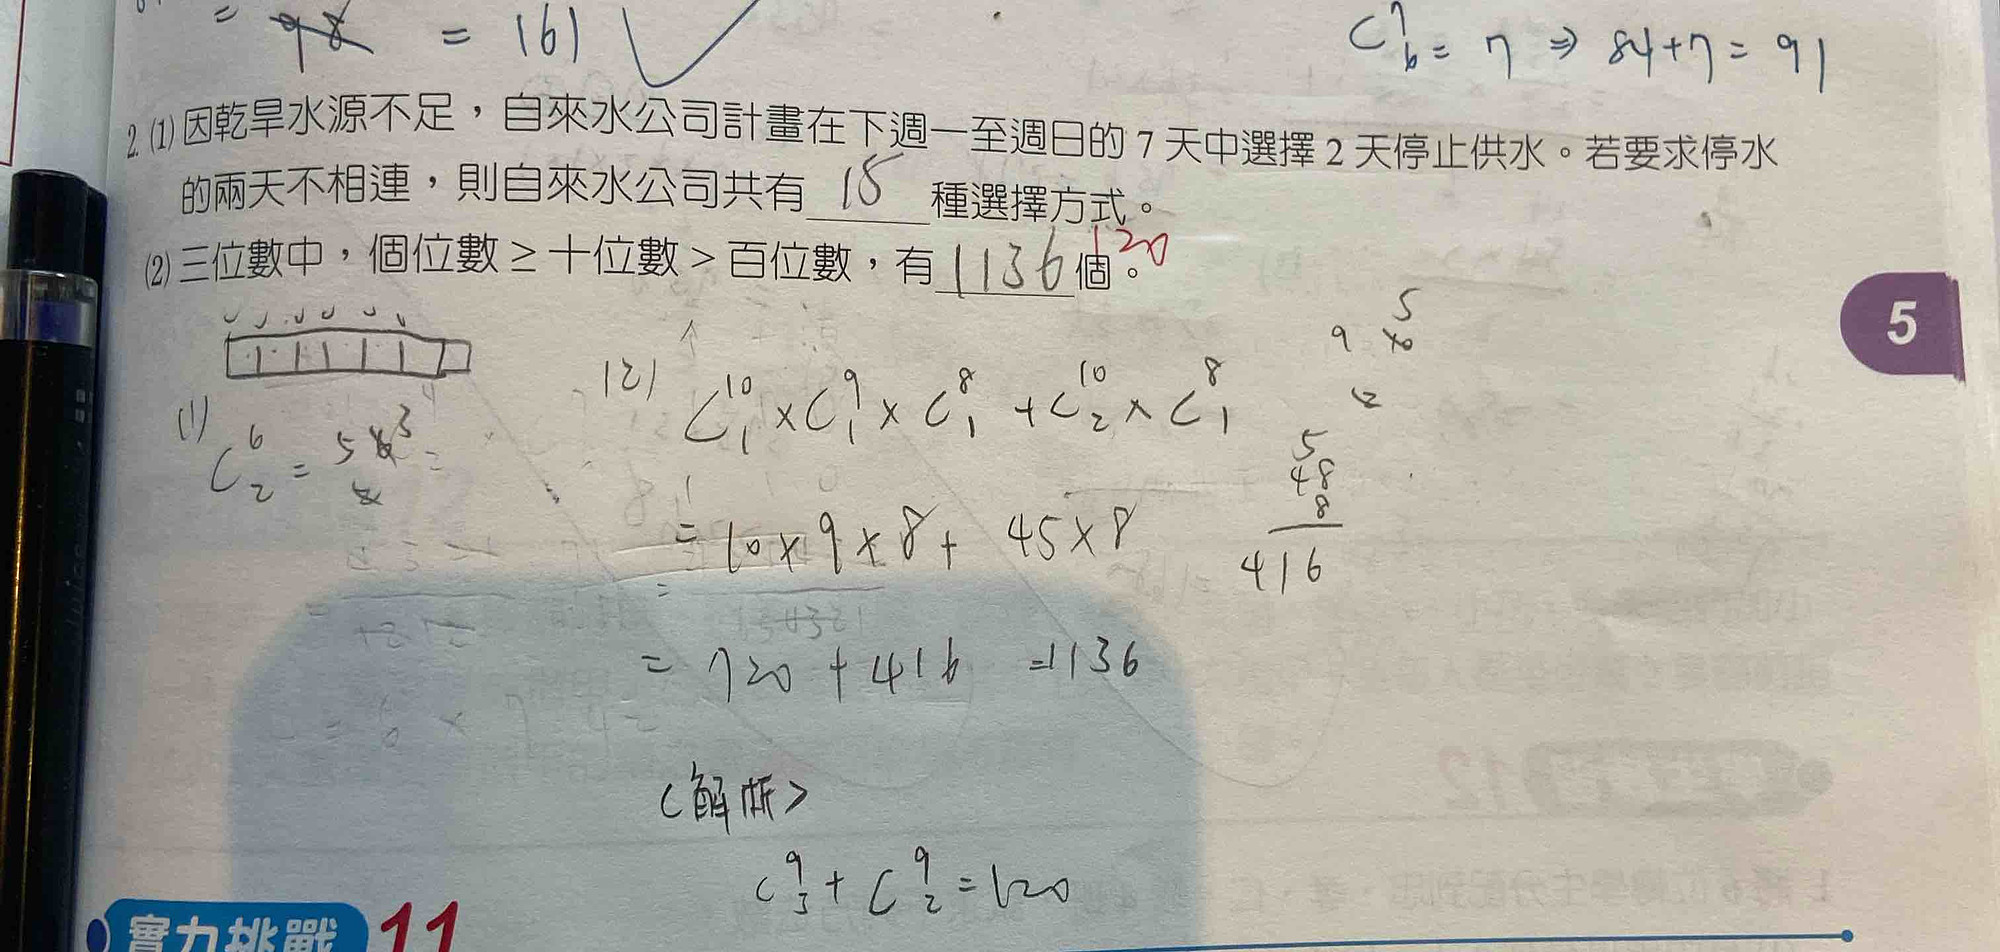 = 98 = 161
C⁷₆ = 7 ⇒ 84+7 = 91
2. (1) 因乾旱水源不足，自來水公司計畫在下週一至週日的 7 天中選擇 2 天停止供水。若要求停水
的兩天不相連，則自來水公司共有 15 種選擇方式。
120
(2) 三位數中，個位數 ≥ 十位數 > 百位數，有 1136 個。
5
(1)
C⁶₂ =
(2) C¹⁰₁ × C⁹₁ × C⁸₁ + C¹⁰₂ × C⁸₁
= 10×9×8 + 45×8
48
8
416
= 720 + 416 = 1136
<解析>
C⁹₃ + C⁹₂ = 120
實力挑戰 11